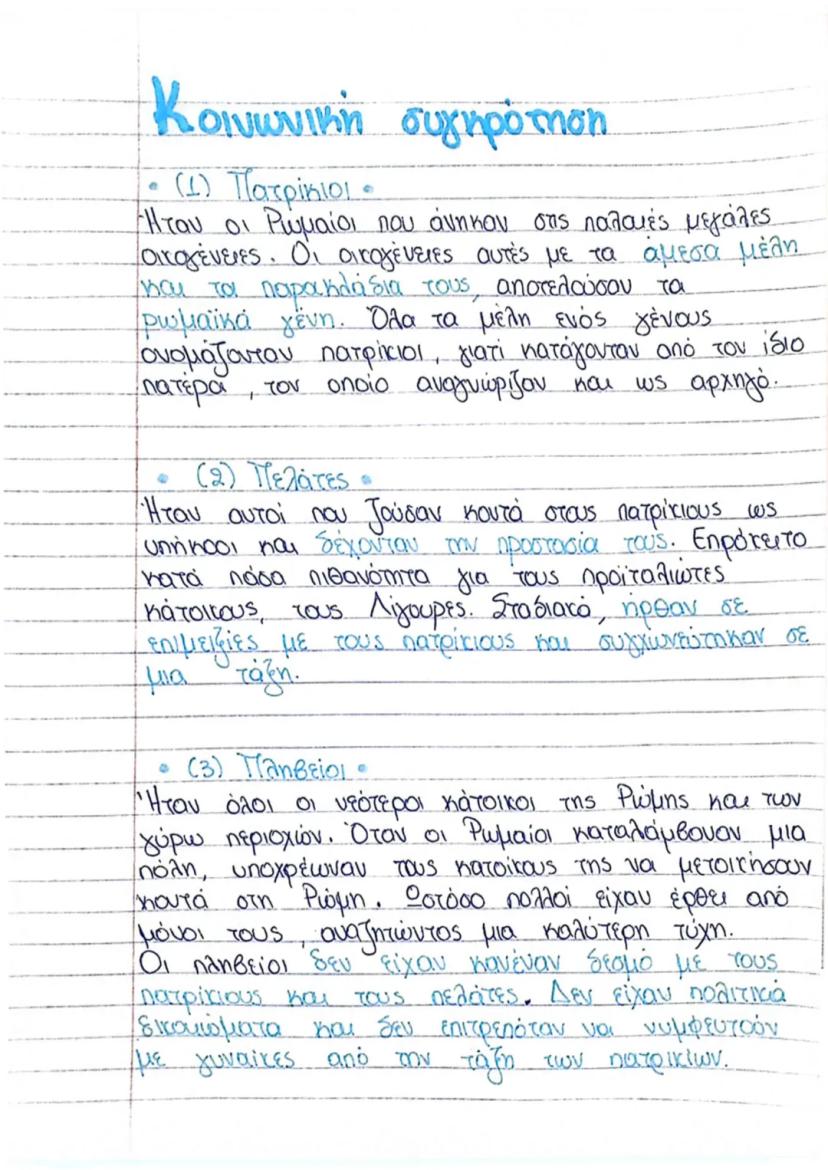 Κοινωνική συγκρότηση
• (1) Πατρίκιοι •
Ήταν οι Ρωμαίοι που άνηκαν στις παλαιές μεγάλες
οικογένειες. Οι οικογένειες αυτές με τα άμεσα μέλη
και τα παρακλάδια τους, αποτελούσαν τα
ρωμαϊκά γένη. Όλα τα μέλη ενός γένους
ονομάζονταν πατρίκιοι, γιατί κατάγονταν από τον ίδιο
πατέρα, τον οποίο αναγνώριζαν και ως αρχηγό.
• (2) Πελάτες •
Ήταν αυτοί που ζούσαν κοντά στους πατρίκιους ως
υπήκοοι και δέχονταν την προστασία τους. Επρόκειτο
κατά πάσα πιθανότητα για τους προϊταλιώτες
κάτοικους, τους Λίγουρες. Σταδιακά, ήρθαν σε
επιμειξίες με τους πατρίκιους και συγχωνεύτηκαν σε
μια τάξη.
• (3) Πληβείοι •
Ήταν όλοι οι νεότεροι κάτοικοι της Ρώμης και των
γύρω περιοχών. Όταν οι Ρωμαίοι καταλάμβαναν μια
πόλη, υποχρέωναν τους κατοίκους της να μετοικήσουν
κοντά στη Ρώμη. Ωστόσο πολλοί είχαν έρθει από
μόνοι τους, αναζητώντας μια καλύτερη τύχη.
Οι πληβείοι δεν είχαν κανέναν δεσμό με τους
πατρίκιους και τους πελάτες. Δεν είχαν πολιτικά
δικαιώματα και δεν επιτρεπόταν να νυμφευτούν
με γυναίκες από την τάξη των πατρικίων.